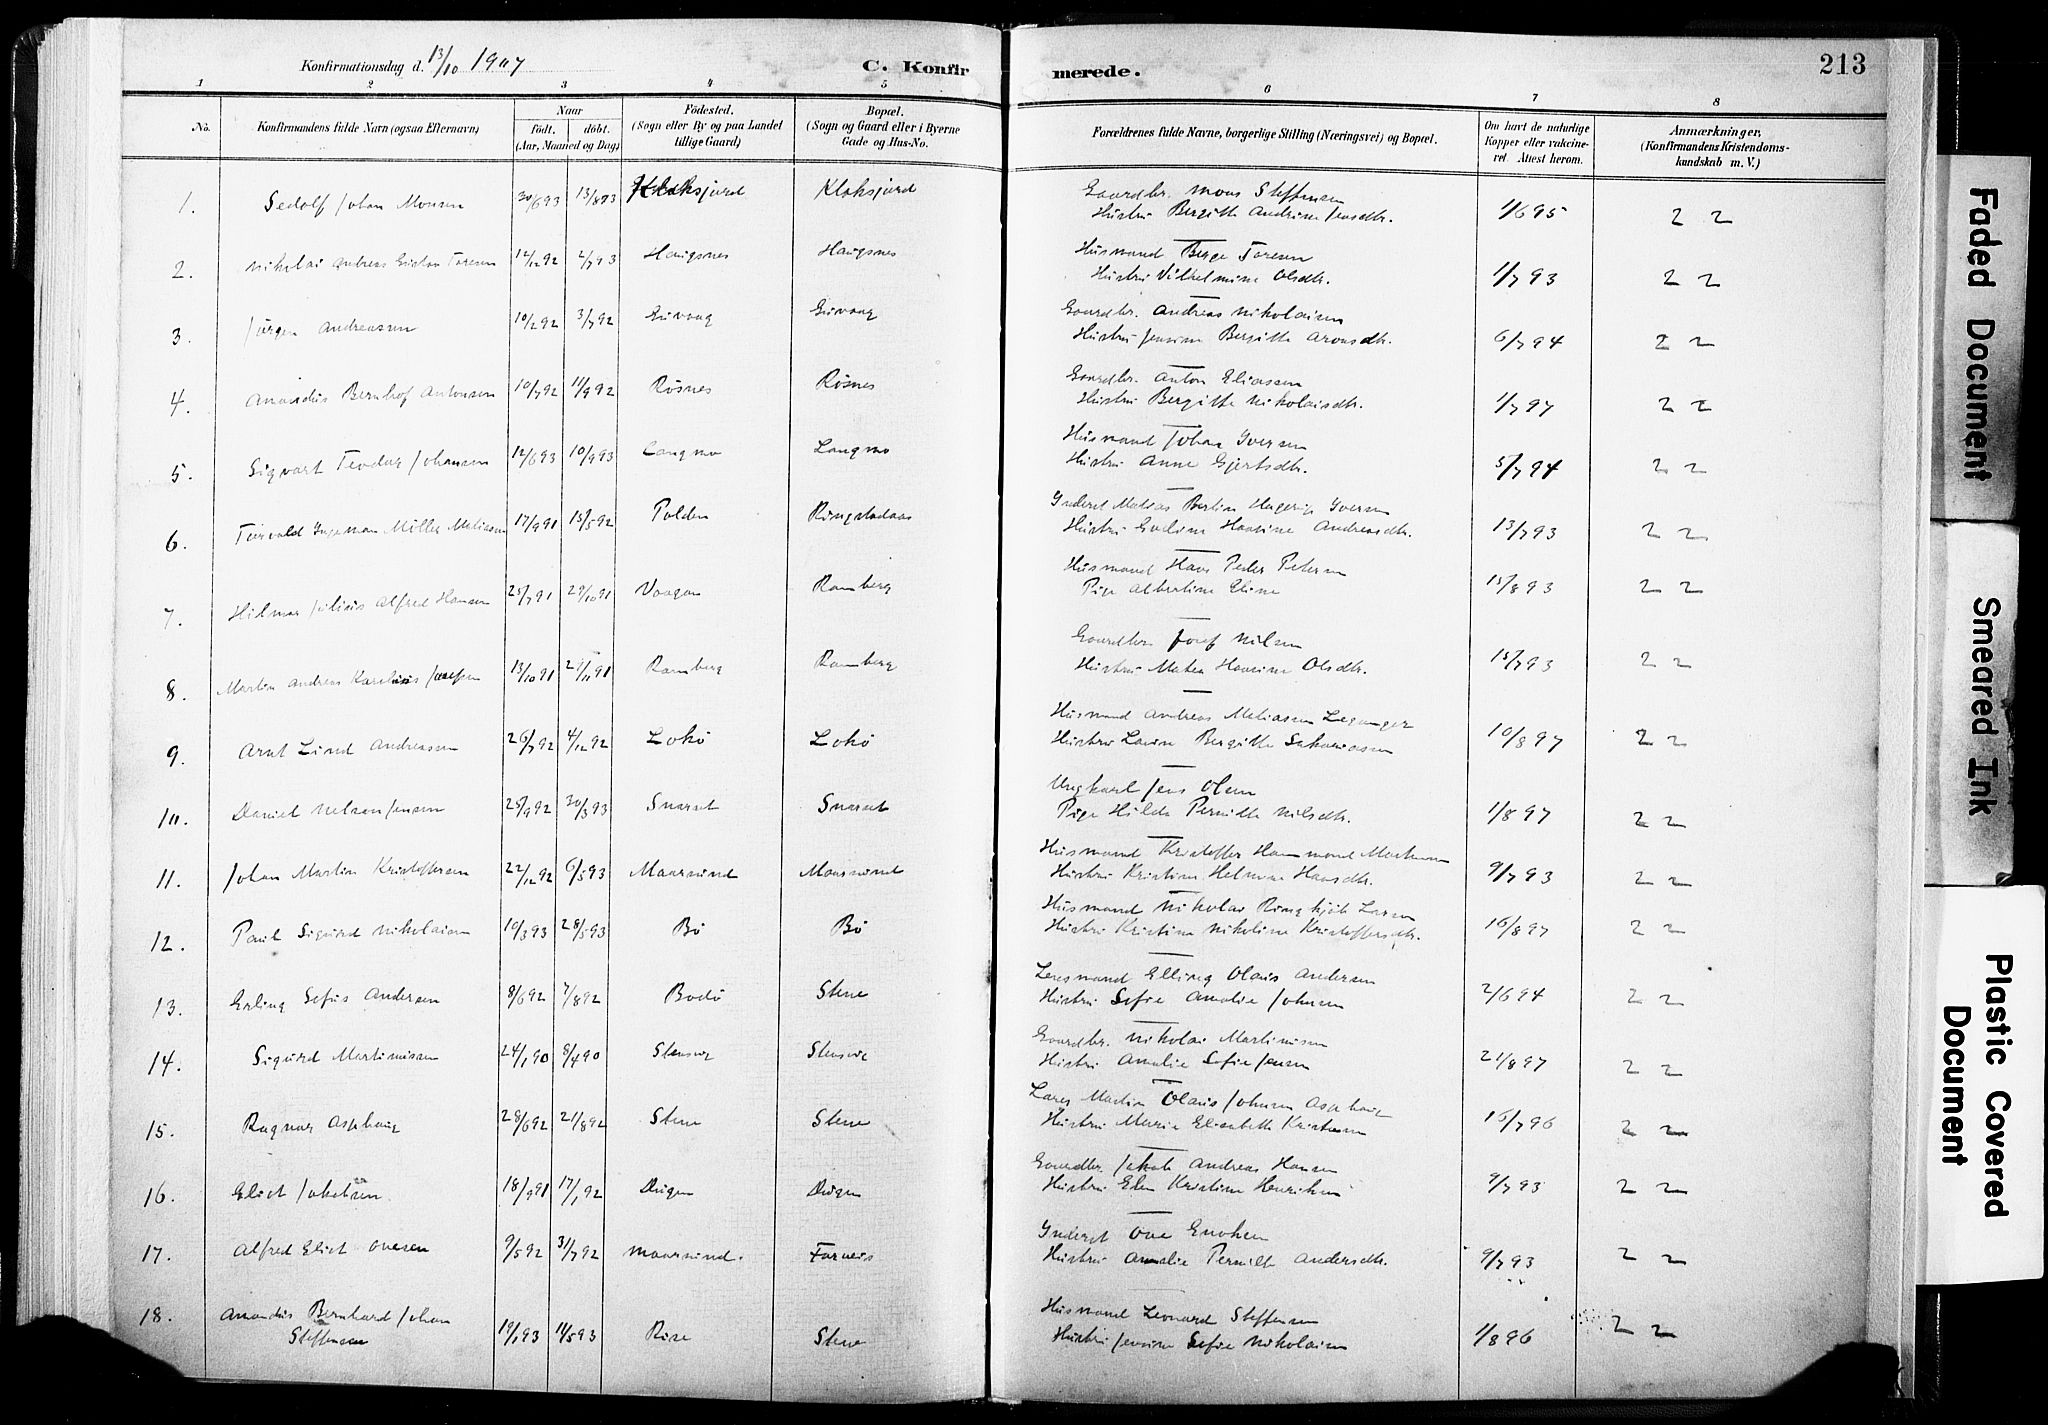 Konfirmationsdag d. 13/10 1907
C. Konfirmerede.
213
1 2 3 4 5 6 7 8
No.
Konfirmandens fulde Navn (ogsaa Efternavn)
Naar
født. døbt.
(Aar, Maaned og Dag)
Fødested.
(Sogn eller By og paa Landet
tillige Gaard)
Bopæl.
(Sogn og Gaard eller i Byerne
Gade og Hus-No.
Forældrenes fulde Navne, borgerlige Stilling (Næringsvei) og Bopæl.
Om havt de naturlige
Kopper eller vakcine-
ret. Attest herom.
Anmærkninger,
(Konfirmandens Kristendoms-
kundskab m. V.)
1. Sedolf Johan Monsen 30/6 93 13/8 93 Klaksjord Klaksjord Gaardbr. Mons Steffensen 1/6 95 2 2
Hustru Bergitte Andrine Jensdtr.
2. Nikolai Andreas Toresen 12/12 92 2/7 93 Haugsnes Haugsnes Husmand Berge Toresen 1/7 93 2 2
Hustru Vilhelmine Olsdtr.
3. Jørgen Andreassen 10/2 92 3/7 92 Guvaag Guvaag Gaardbr. Andreas Nikolaisen 6/7 94 2 2
Hustru Jensine Bergitte Aronsdtr.
4. Amandus Bernhof Antonsen 10/7 92 11/9 92 Røsnes Røsnes Gaardbr. Anton Eliassen 1/7 97 2 2
Hustru Bergitte Nikolaisdtr.
5. Sigvart Teodor Johansen 12/6 93 10/9 93 Langmo Langmo Husmand Johan Iversen 5/7 94 2 2
Hustru Anne Gjertsdtr.
6. Torvald Ingeman Müller Meliassen 17/9 91 15/5 92 Polden Ringstadaas Inderst Iversen 13/7 93 2 2
Hustru Eveline Hansine Andreasdtr.
7. Hilmar Julius Alfred Hansen 25/7 91 29/10 91 Vaagan Ramberg Husmand Hans Peder Petersen 15/8 93 2 2
Pige Albertine Eline
8. Martin Andreas Karelius Josefsen 13/10 91 29/11 91 Ramberg Ramberg Gaardbr. Josef Nilsen 15/7 93 2 2
Hustru Matea Hansine Olsdtr.
9. Arnt Lind Andreassen 26/7 92 4/12 92 Lokø Lokø Husmand Andreas Meliassen Leganger 10/8 97 2 2
Hustru Lovise Bergitte Sakariassen
10. Daniel Nelson Jensen 25/9 92 30/3 93 Snarset Snarset Ungkarl Jens Olsen 1/8 97 2 2
Pige Hilda Pernitte Nilsdtr.
11. Johan Martin Kristoffersen 22/12 92 6/5 93 Maarsund Maarsund Husmand Kristoffer Hammond Martinsen 9/7 93 2 2
Hustru Kristine Helmine Hansdtr.
12. Paul Sigurd Nikolaisen 10/3 93 28/5 93 Bø Bø Husmand Nikolai Ringkjøb Larsen 16/8 97 2 2
Hustru Kristine Nikoline Kristoffersdtr.
13. Erling Sofus Andersen 8/6 92 7/8 92 Bodø Stene Lensmand Elling Olaus Andersen 2/6 94 2 2
Hustru Sofie Amalie Johnsen
14. Sigurd Martinussen 24/1 90 8/4 90 Stensvig Stensvig Gaardbr. Nikolai Martinusen 21/8 97 2 2
Hustru Amalie Sofie Jensen
15. Ragnar Asphaug 28/6 92 21/8 92 Stene Stene Martin Olaus Johnsen Asphaug 16/7 96 2 2
Hustru Marie Elisabeth Kristensen
16. Eliot Jakobsen 18/9 91 17/1 92 Øvigen Øvigen Gaardbr. Jakob Andreas Hansen 9/7 93 2 2
Hustru Elen Kristine Henriksen
17. Alfred Eliot Ovesen 9/5 92 31/7 92 Maarsund. Inderst Ove Enoksen 9/7 93 2 2
Hustru Amalie Pernille Andersdtr.
18. Amandus Bernhard Johan
Steffensen 19/1 93 11/5 93 Rise Stene Husmand Leonard Steffensen 1/8 96 2 2
Hustru Jensine Sofie Nikolaisen
Faded Document
Smeared Ink
Plastic Covered
Document